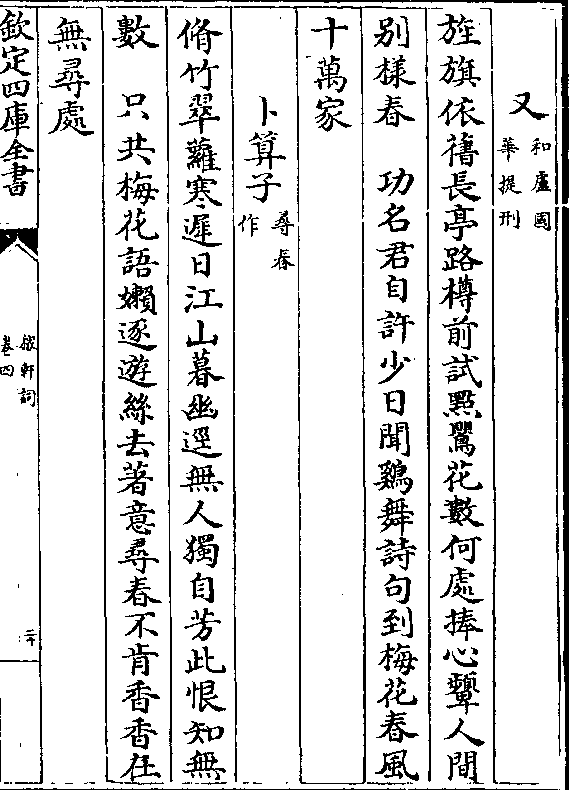 又 和盧國華提刑
旌旗依舊長亭路樽前試㸃鶯花數何處捧心顰人間
别様春　功名君自許少日聞鷄舞詩句到梅花春風
十萬家
卜算子 尋春作
脩竹翠蘿寒遲日江山暮幽逕無人獨自芳此恨知無
數　只共梅花語嬾逐遊絲去著意尋春不肯香香在
無尋處
欽定四庫全書
稼軒詞
卷四
二十